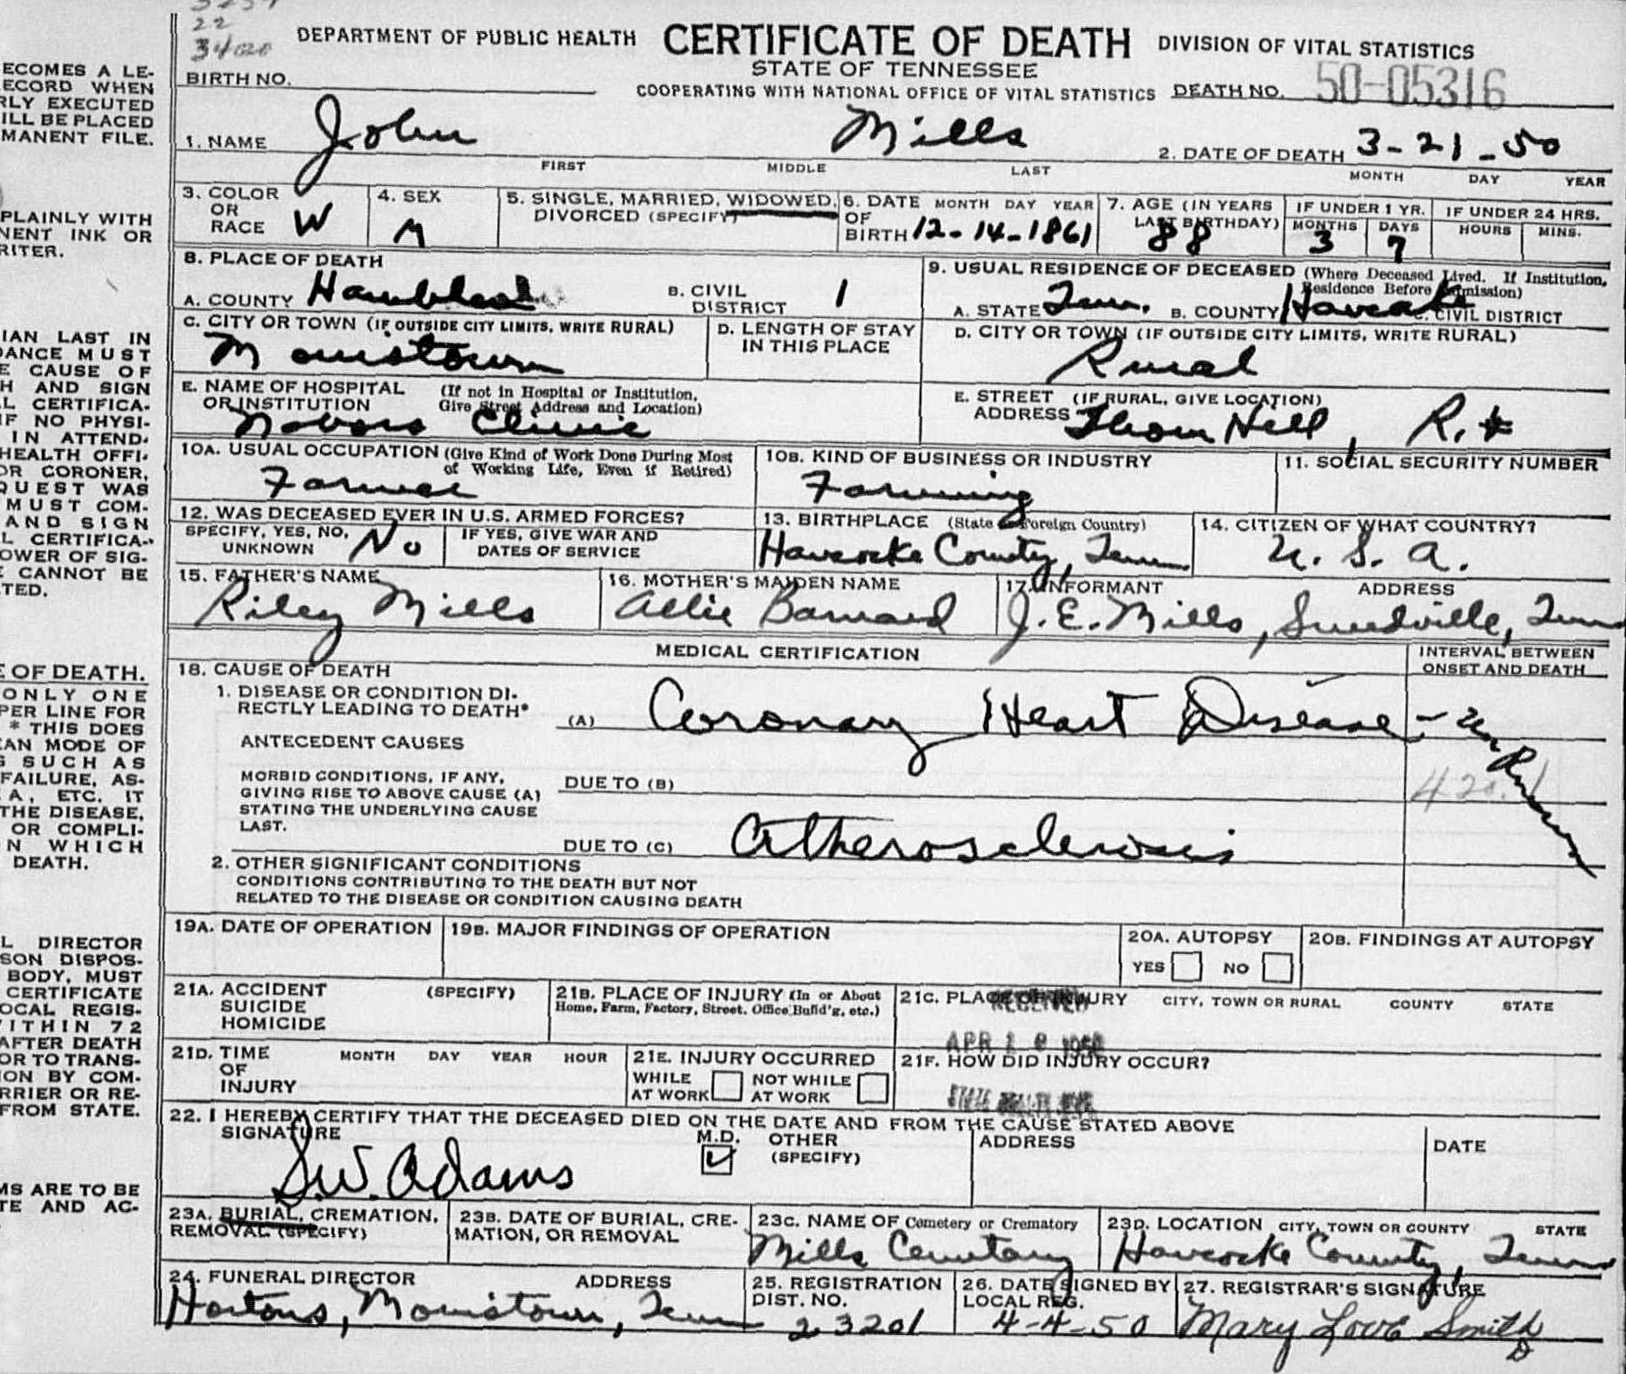 22
34020
DEPARTMENT OF PUBLIC HEALTH CERTIFICATE OF DEATH DIVISION OF VITAL STATISTICS
STATE OF TENNESSEE
COOPERATING WITH NATIONAL OFFICE OF VITAL STATISTICS
BIRTH NO. DEATH NO. 50-05316
1. NAME John Mills 2. DATE OF DEATH 3-21-50
FIRST MIDDLE LAST MONTH DAY YEAR
3. COLOR OR RACE W
4. SEX M
5. SINGLE, MARRIED, WIDOWED, DIVORCED (SPECIFY)
6. DATE OF BIRTH MONTH DAY YEAR 12-14-1861
7. AGE (IN YEARS LAST BIRTHDAY) 88
IF UNDER 1 YR. MONTHS 3 DAYS 7
IF UNDER 24 HRS. HOURS MINS.
8. PLACE OF DEATH
A. COUNTY Hamblen
B. CIVIL DISTRICT 1
9. USUAL RESIDENCE OF DECEASED (Where Deceased Lived. If Institution, Residence Before Admission)
A. STATE Tenn. B. COUNTY Hancocke C. CIVIL DISTRICT
C. CITY OR TOWN (IF OUTSIDE CITY LIMITS, WRITE RURAL)
Morristown
D. LENGTH OF STAY IN THIS PLACE
D. CITY OR TOWN (IF OUTSIDE CITY LIMITS, WRITE RURAL)
Rural
E. NAME OF HOSPITAL OR INSTITUTION (If not in Hospital or Institution, Give Street Address and Location)
Nabors Clinic
E. STREET ADDRESS (IF RURAL, GIVE LOCATION)
Thorn Hill, R. #
10A. USUAL OCCUPATION (Give Kind of Work Done During Most of Working Life, Even if Retired)
Farmer
10B. KIND OF BUSINESS OR INDUSTRY
Farming
11. SOCIAL SECURITY NUMBER
12. WAS DECEASED EVER IN U.S. ARMED FORCES?
SPECIFY, YES, NO, UNKNOWN No
IF YES, GIVE WAR AND DATES OF SERVICE
13. BIRTHPLACE (State or Foreign Country)
Hancocke County, Tenn.
14. CITIZEN OF WHAT COUNTRY?
U. S. A.
15. FATHER'S NAME
Riley Mills
16. MOTHER'S MAIDEN NAME
Allie Barnard
17. INFORMANT ADDRESS
J. E. Mills, Sneedville, Tenn
MEDICAL CERTIFICATION
INTERVAL BETWEEN ONSET AND DEATH
18. CAUSE OF DEATH
1. DISEASE OR CONDITION DIRECTLY LEADING TO DEATH*
(A) Coronary Heart Disease -
ANTECEDENT CAUSES
MORBID CONDITIONS, IF ANY, GIVING RISE TO ABOVE CAUSE (A) STATING THE UNDERLYING CAUSE LAST.
DUE TO (B)
420.1
DUE TO (C) Atherosclerosis
2. OTHER SIGNIFICANT CONDITIONS
CONDITIONS CONTRIBUTING TO THE DEATH BUT NOT
RELATED TO THE DISEASE OR CONDITION CAUSING DEATH
19A. DATE OF OPERATION
19B. MAJOR FINDINGS OF OPERATION
20A. AUTOPSY
YES NO
20B. FINDINGS AT AUTOPSY
21A. ACCIDENT SUICIDE HOMICIDE (SPECIFY)
21B. PLACE OF INJURY (In or About Home, Farm, Factory, Street, Office Build'g, etc.)
21C. PLACE OF INJURY CITY, TOWN OR RURAL COUNTY STATE
RECEIVED
APR 1950
21D. TIME OF INJURY MONTH DAY YEAR HOUR
21E. INJURY OCCURRED
WHILE AT WORK NOT WHILE AT WORK
21F. HOW DID INJURY OCCUR?
22. I HEREBY CERTIFY THAT THE DECEASED DIED ON THE DATE AND FROM THE CAUSE STATED ABOVE
SIGNATURE M.D. OTHER (SPECIFY) ADDRESS DATE
S.W. Adams
23A. BURIAL, CREMATION, REMOVAL (SPECIFY)
23B. DATE OF BURIAL, CREMATION, OR REMOVAL
23C. NAME OF Cemetery or Crematory
Mills Cemetary
23D. LOCATION CITY, TOWN OR COUNTY STATE
Hancocke County, Tenn
24. FUNERAL DIRECTOR ADDRESS
Hortons, Morristown, Tenn
25. REGISTRATION DIST. NO.
23201
26. DATE SIGNED BY LOCAL REG.
4-4-50
27. REGISTRAR'S SIGNATURE
Mary Love Smith
ECOMES A LE-
ECORD WHEN
RLY EXECUTED
ILL BE PLACED
MANENT FILE.
PLAINLY WITH
NENT INK OR
RITER.
IAN LAST IN
DANCE MUST
E CAUSE OF
H AND SIGN
L CERTIFICA-
IF NO PHYSI-
IN ATTEND-
HEALTH OFFI-
OR CORONER,
QUEST WAS
MUST COM-
AND SIGN
L CERTIFICA-
OWER OF SIG-
E CANNOT BE
TED.
E OF DEATH.
ONLY ONE
PER LINE FOR
* THIS DOES
EAN MODE OF
G SUCH AS
FAILURE, AS-
A, ETC. IT
THE DISEASE,
OR COMPLI-
N WHICH
DEATH.
L DIRECTOR
SON DISPOS-
BODY, MUST
CERTIFICATE
OCAL REGIS-
WITHIN 72
AFTER DEATH
OR TO TRANS-
ION BY COM-
RRIER OR RE-
FROM STATE.
MS ARE TO BE
TE AND AC-